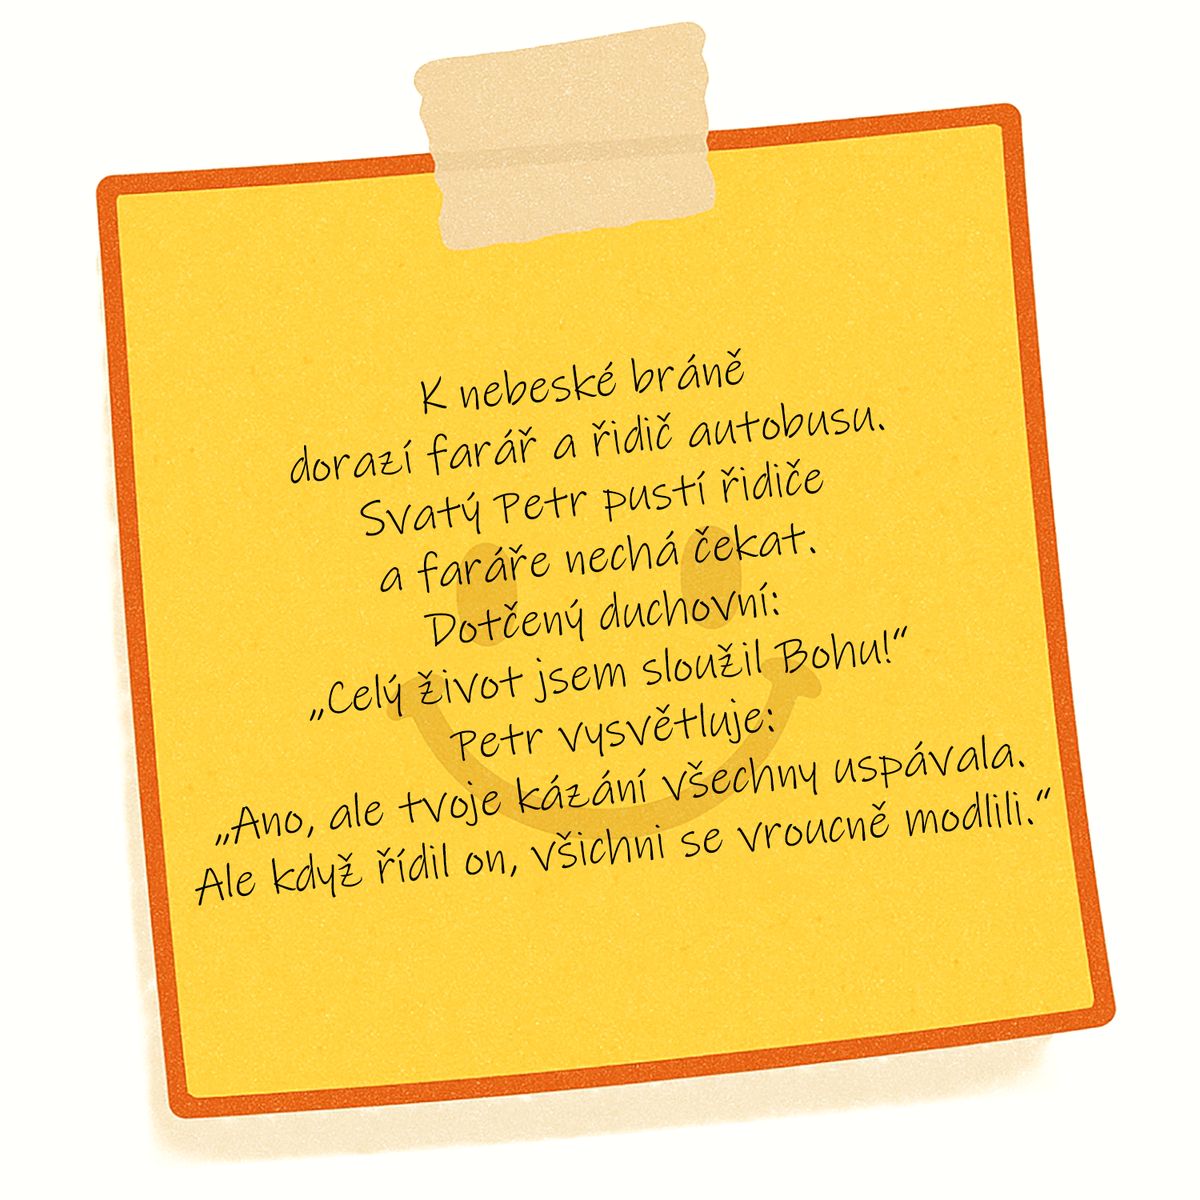 K nebeské bráně
dorazí farář a řidič autobusu.
Svatý Petr pustí řidiče
a faráře nechá čekat.
Dotčený duchovní:
„Celý život jsem sloužil Bohu!“
Petr vysvětluje:
„Ano, ale tvoje kázání všechny uspávala.
Ale když řídil on, všichni se vroucně modlili.“